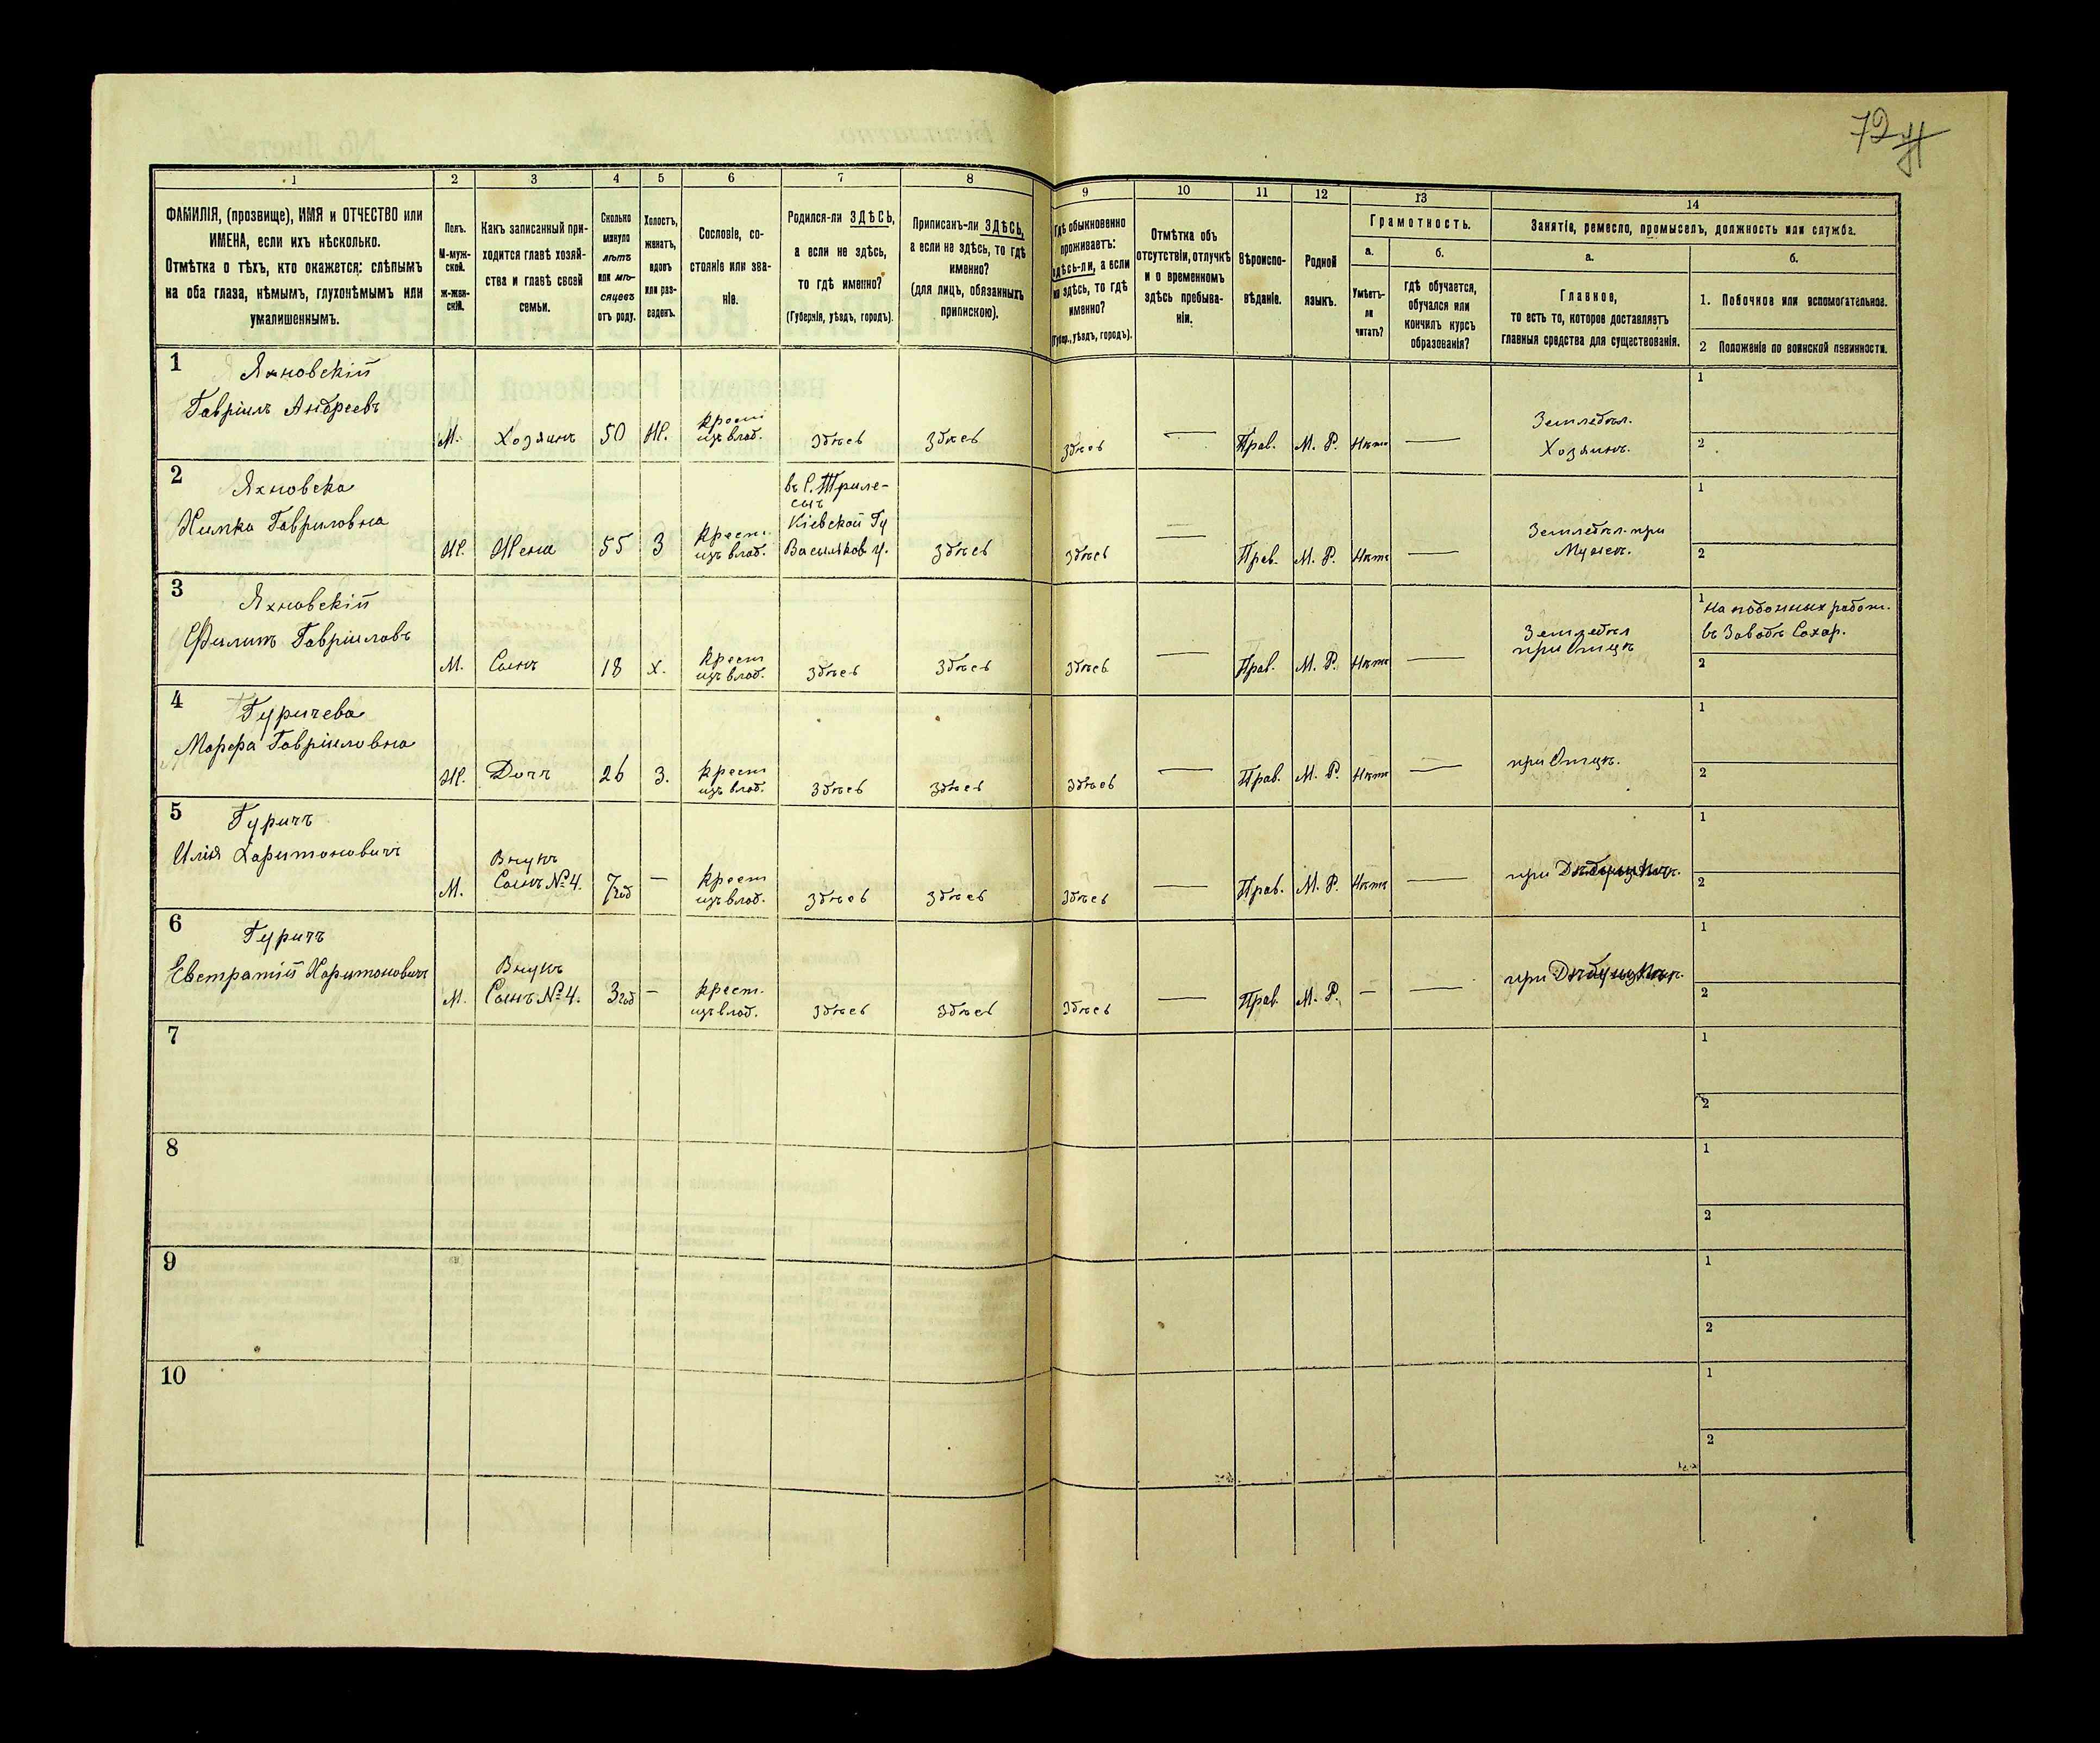 72
1 2 3 4 5 6 7 8 9 10 11 12 13 14
ФАМИЛІЯ, (прозвище), ИМЯ и ОТЧЕСТВО или
ИМЕНА, если ихъ нѣсколько.
Отмѣтка о тѣхъ, кто окажется: слѣпымъ
на оба глаза, нѣмымъ, глухонѣмымъ или
умалишеннымъ.
Полъ.
М-муж-
ской.
ж-жен-
скій.
Какъ записанный при-
ходится главѣ хозяй-
ства и главѣ своей
семьи.
Сколько
минуло
лѣтъ
или мѣ-
сяцевъ
отъ роду.
Холостъ,
женатъ,
вдовъ
или раз-
веденъ.
Сословіе, со-
стояніе или зва-
ніе.
Родился-ли ЗДѢСЬ,
а если не здѣсь,
то гдѣ именно?
(Губернія, уѣздъ, городъ).
Приписанъ-ли ЗДѢСЬ,
а если не здѣсь, то гдѣ
именно?
(для лицъ, обязанныхъ
припискою).
Гдѣ обыкновенно
проживаетъ:
здѣсь-ли, а если
не здѣсь, то гдѣ
именно?
(Губер., уѣздъ, городъ).
Отмѣтка объ
отсутствіи, отлучкѣ
и о временномъ
здѣсь пребыва-
ніи.
Вѣроиспо-
вѣданіе.
Родной
языкъ.
Грамотность.
а.
Умѣетъ-
ли
читать?
б.
гдѣ обучается,
обучался или
кончилъ курсъ
образованія?
Занятіе, ремесло, промыселъ, должность или служба.
а.
Главное,
то есть то, которое доставляетъ
главныя средства для существованія.
б.
1. Побочное или вспомогательное.
2 Положеніе по воинской повинности.
1
Яхновскій
Гавріилъ Андреевъ
М.
Хозяинъ
50
Ж.
крест
изъ влад.
Здѣсь
Здѣсь
Здѣсь
—
Прав.
М. Р.
Нѣтъ
—
Землед̾ѣл.
Хозяинъ.
1
2
2
Яхновска
Химка Гавриловна
Ж.
Жена
55
З
крест.
изъ влад.
въ С. Триле-
сы
Кіевской Гу
Васильков у.
Здѣсь
Здѣсь
—
Прав.
М. Р.
Нѣтъ
—
Земледѣл. при
Мужѣ.
1
2
3
Яхновскій
Филипъ Гавріиловъ
М.
Сынъ
18
х.
крест
изъ влад.
Здѣсь
Здѣсь
Здѣсь
—
Прав.
М. Р.
Нѣтъ
—
Земледѣл
при Отцѣ
1 На побочных работ.
въ Заводѣ Сахар.
2
4
Гуричева
Марфа Гавріиловна
Ж.
Дочъ
26
З.
крест
изъ влад.
Здѣсь
Здѣсь
Здѣсь
—
Прав.
М. Р.
Нѣтъ
—
при Отцѣ.
1
2
5
Гуричъ
Илія Харитоновичъ
М.
Внукъ
Сынъ № 4.
7 год
—
крест
изъ влад.
Здѣсь
Здѣсь
Здѣсь
—
Прав.
М. Р.
Нѣтъ
—
при
1
2
6
Гуричъ
Евстратій Харитоновичъ
М.
Внукъ
Сынъ № 4.
3 год
—
крест.
изъ влад.
Здѣсь
Здѣсь
Здѣсь
—
Прав.
М. Р.
—
—
при
1
2
7
1
2
8
1
2
9
1
2
10
1
2